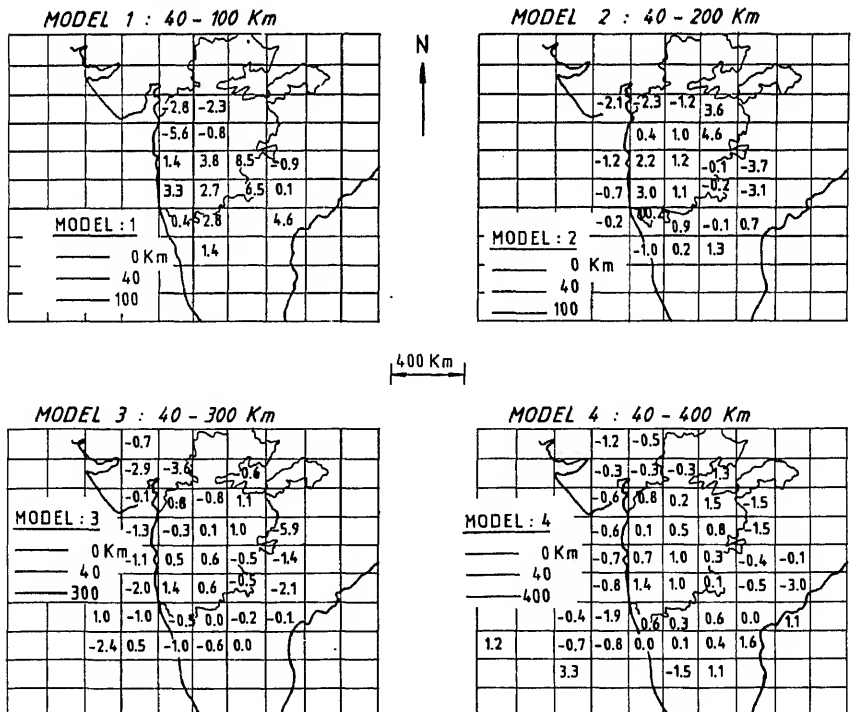 MODEL 1 : 40 - 100 Km
-2.8 -2.3
-5.6 -0.8
1.4 3.8 8.5 -0.9
3.3 2.7 6.5 0.1
0.4 2.8 4.6
1.4
MODEL : 1
0 Km
40
100
N
MODEL 2 : 40 - 200 Km
-2.1 -2.3 -1.2 3.6
0.4 1.0 4.6
-1.2 2.2 1.2 -0.1 -3.7
-0.7 3.0 1.1 -0.2 -3.1
-0.2 0.9 -0.1 0.7
-1.0 0.2 1.3
MODEL : 2
0 Km
40
100
400 Km
MODEL 3 : 40 - 300 Km
-0.7
-2.9 -3.6 -0.6
-0.1 0.8 -0.8 1.1
-1.3 -0.3 0.1 1.0 -5.9
-1.1 0.5 0.6 -0.5 -1.4
-2.0 1.4 0.6 -0.5 -2.1
1.0 -1.0 -0.5 0.0 -0.2 -0.1
-2.4 0.5 -1.0 -0.6 0.0
MODEL : 3
0 Km
40
300
MODEL 4 : 40 - 400 Km
-1.2 -0.5
-0.3 -0.3 -0.3 1.3
-0.6 0.8 0.2 1.5 -1.5
-0.6 0.1 0.5 0.8 -1.5
-0.7 0.7 1.0 0.3 -0.4 -0.1
-0.8 1.4 1.0 0.1 -0.5 -3.0
-0.4 -1.9 0.6 0.3 0.6 0.0 1.1
1.2 -0.7 -0.8 0.0 0.1 0.4 1.6
3.3 -1.5 1.1
MODEL : 4
0 Km
40
400